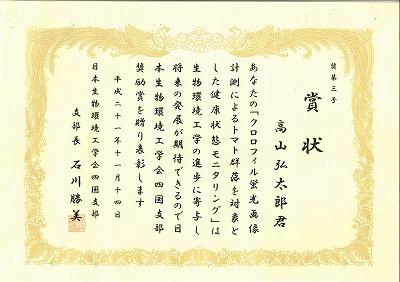 奨第三号
賞状
高山弘太郎君
あなたの『クロロフィル蛍光画像
計測によるトマト群落を対象と
した健康状態モニタリング』は
生物環境工学の進歩に寄与し
将来の発展が期待できるので日
本生物環境工学会四国支部
奨励賞を贈り表彰します
平成二十一年十一月十四日
日本生物環境工学会四国支部
支部長 石川勝美